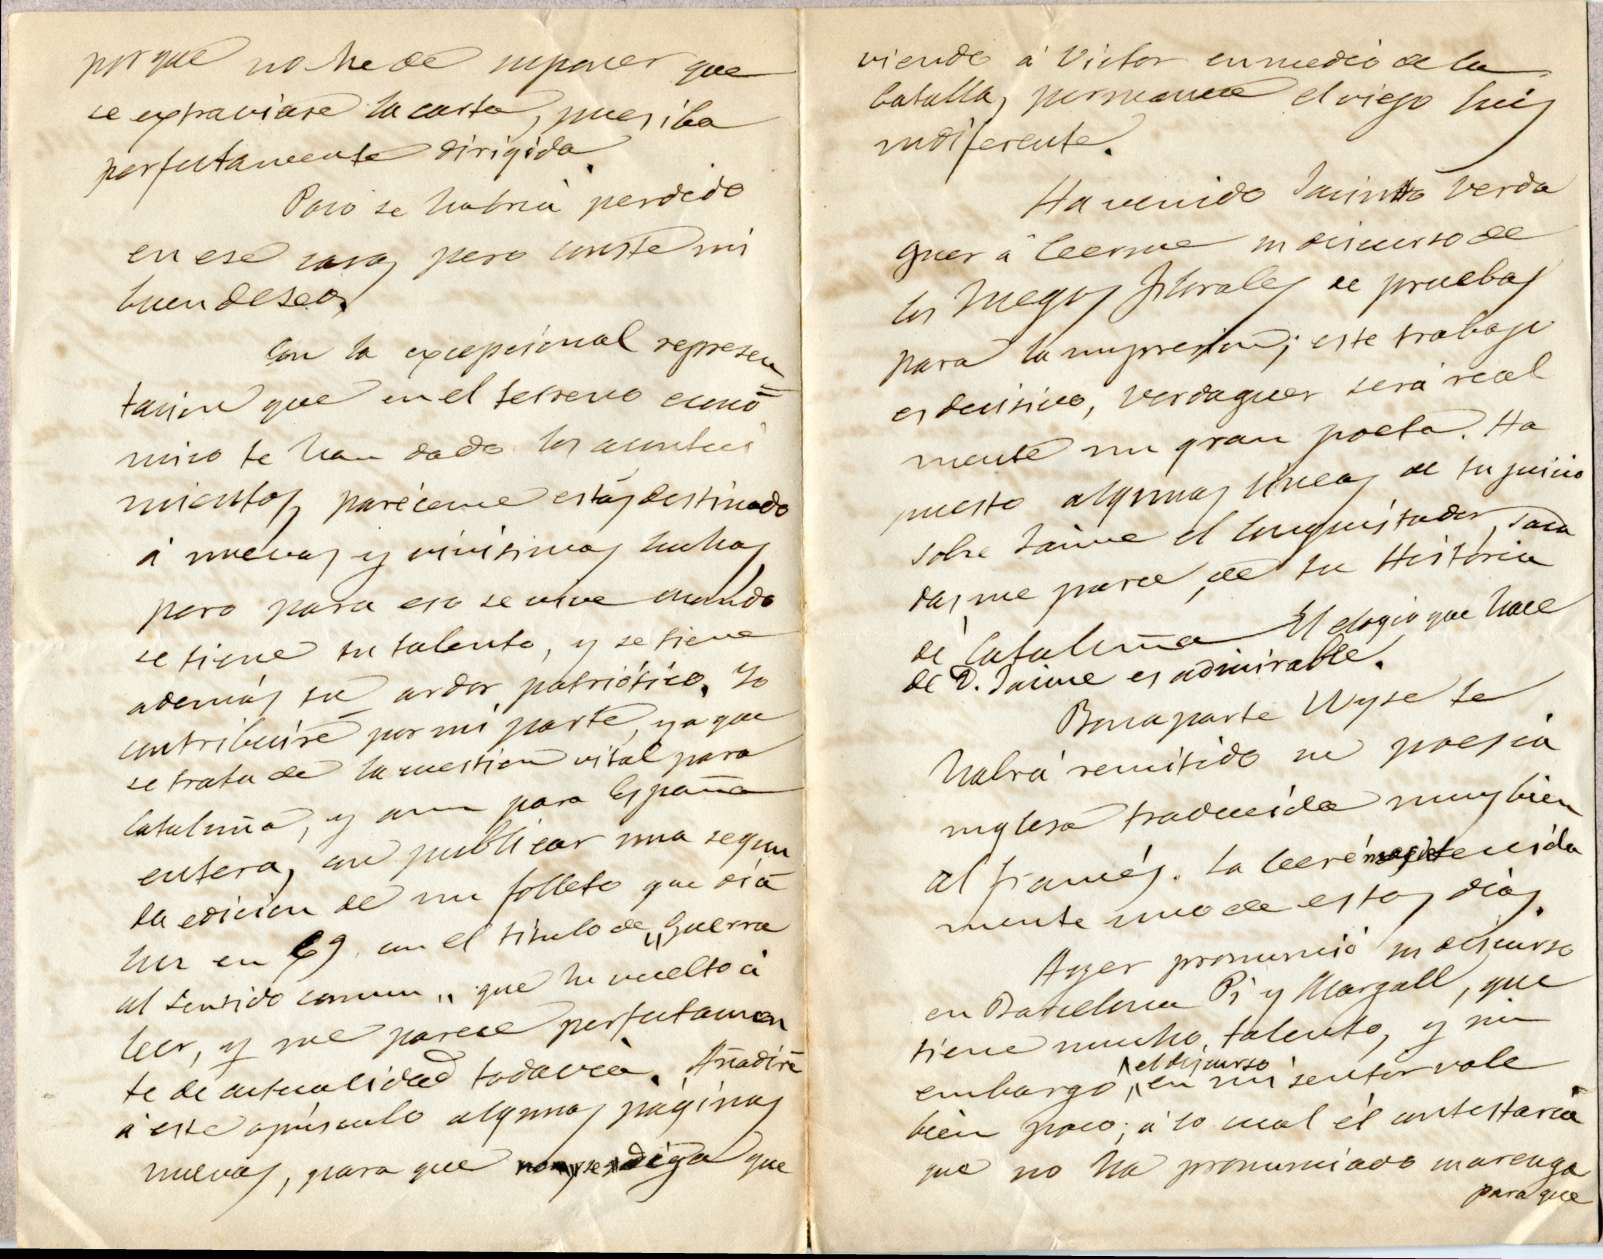 porque no he de suponer que
se extraviase la carta, pues iba
perfectamente dirigida.
Poco se habria perdido
en ese caso, pero conste mi
buen deseo.
Con la excepcional represen
tacion que en el terreno econó
mico te han dado los aconteci
mientos, paréceme estás destinado
á nuevas y vivisimas luchas
pero para eso se vive cuando
se tiene tu talento, y se tiene
además tu ardor patriótico. Yo
contribuiré por mi parte, ya que
se trata de la cuestion vital para
Cataluña, y aun para España
entera, con publicar una segun
da edicion de un folleto que di á
luz en 69 con el titulo de „Guerra
al sentido comun„ que he vuelto á
leer, y me parece perfectamen
te de actualidad todavia. Añadiré
á este opúsculo algunas páginas
nuevas, para que no se diga que
viendo á Victor en medio de la
batalla, permanece el viejo Luis
indiferente.
Ha venido Jacinto Verda
guer á leerme su discurso de
los Juegos florales de pruebas
para la impresion; este trabajo
es decisivo, Verdaguer será real
mente un gran poeta. Ha
puesto algunas lineas de tu juicio
sobre Jaime el Conquistador, saca
das, me parece, de tu História
de Cataluña El elogio que hace
de D. Jaime es admirable.
Bonaparte Wyse te
habrá remitido su poesia
inglesa traducida muy bien
al francés. La leeré detenida
mente uno de estos dias.
Ayer pronunció su discurso
en Barcelona Pi y Margall, que
tiene mucho talento, y sin
embargo, el discurso en mi sentir vale
bien poco; á lo cual él contestaria
que no ha pronunciado su arenga
para que